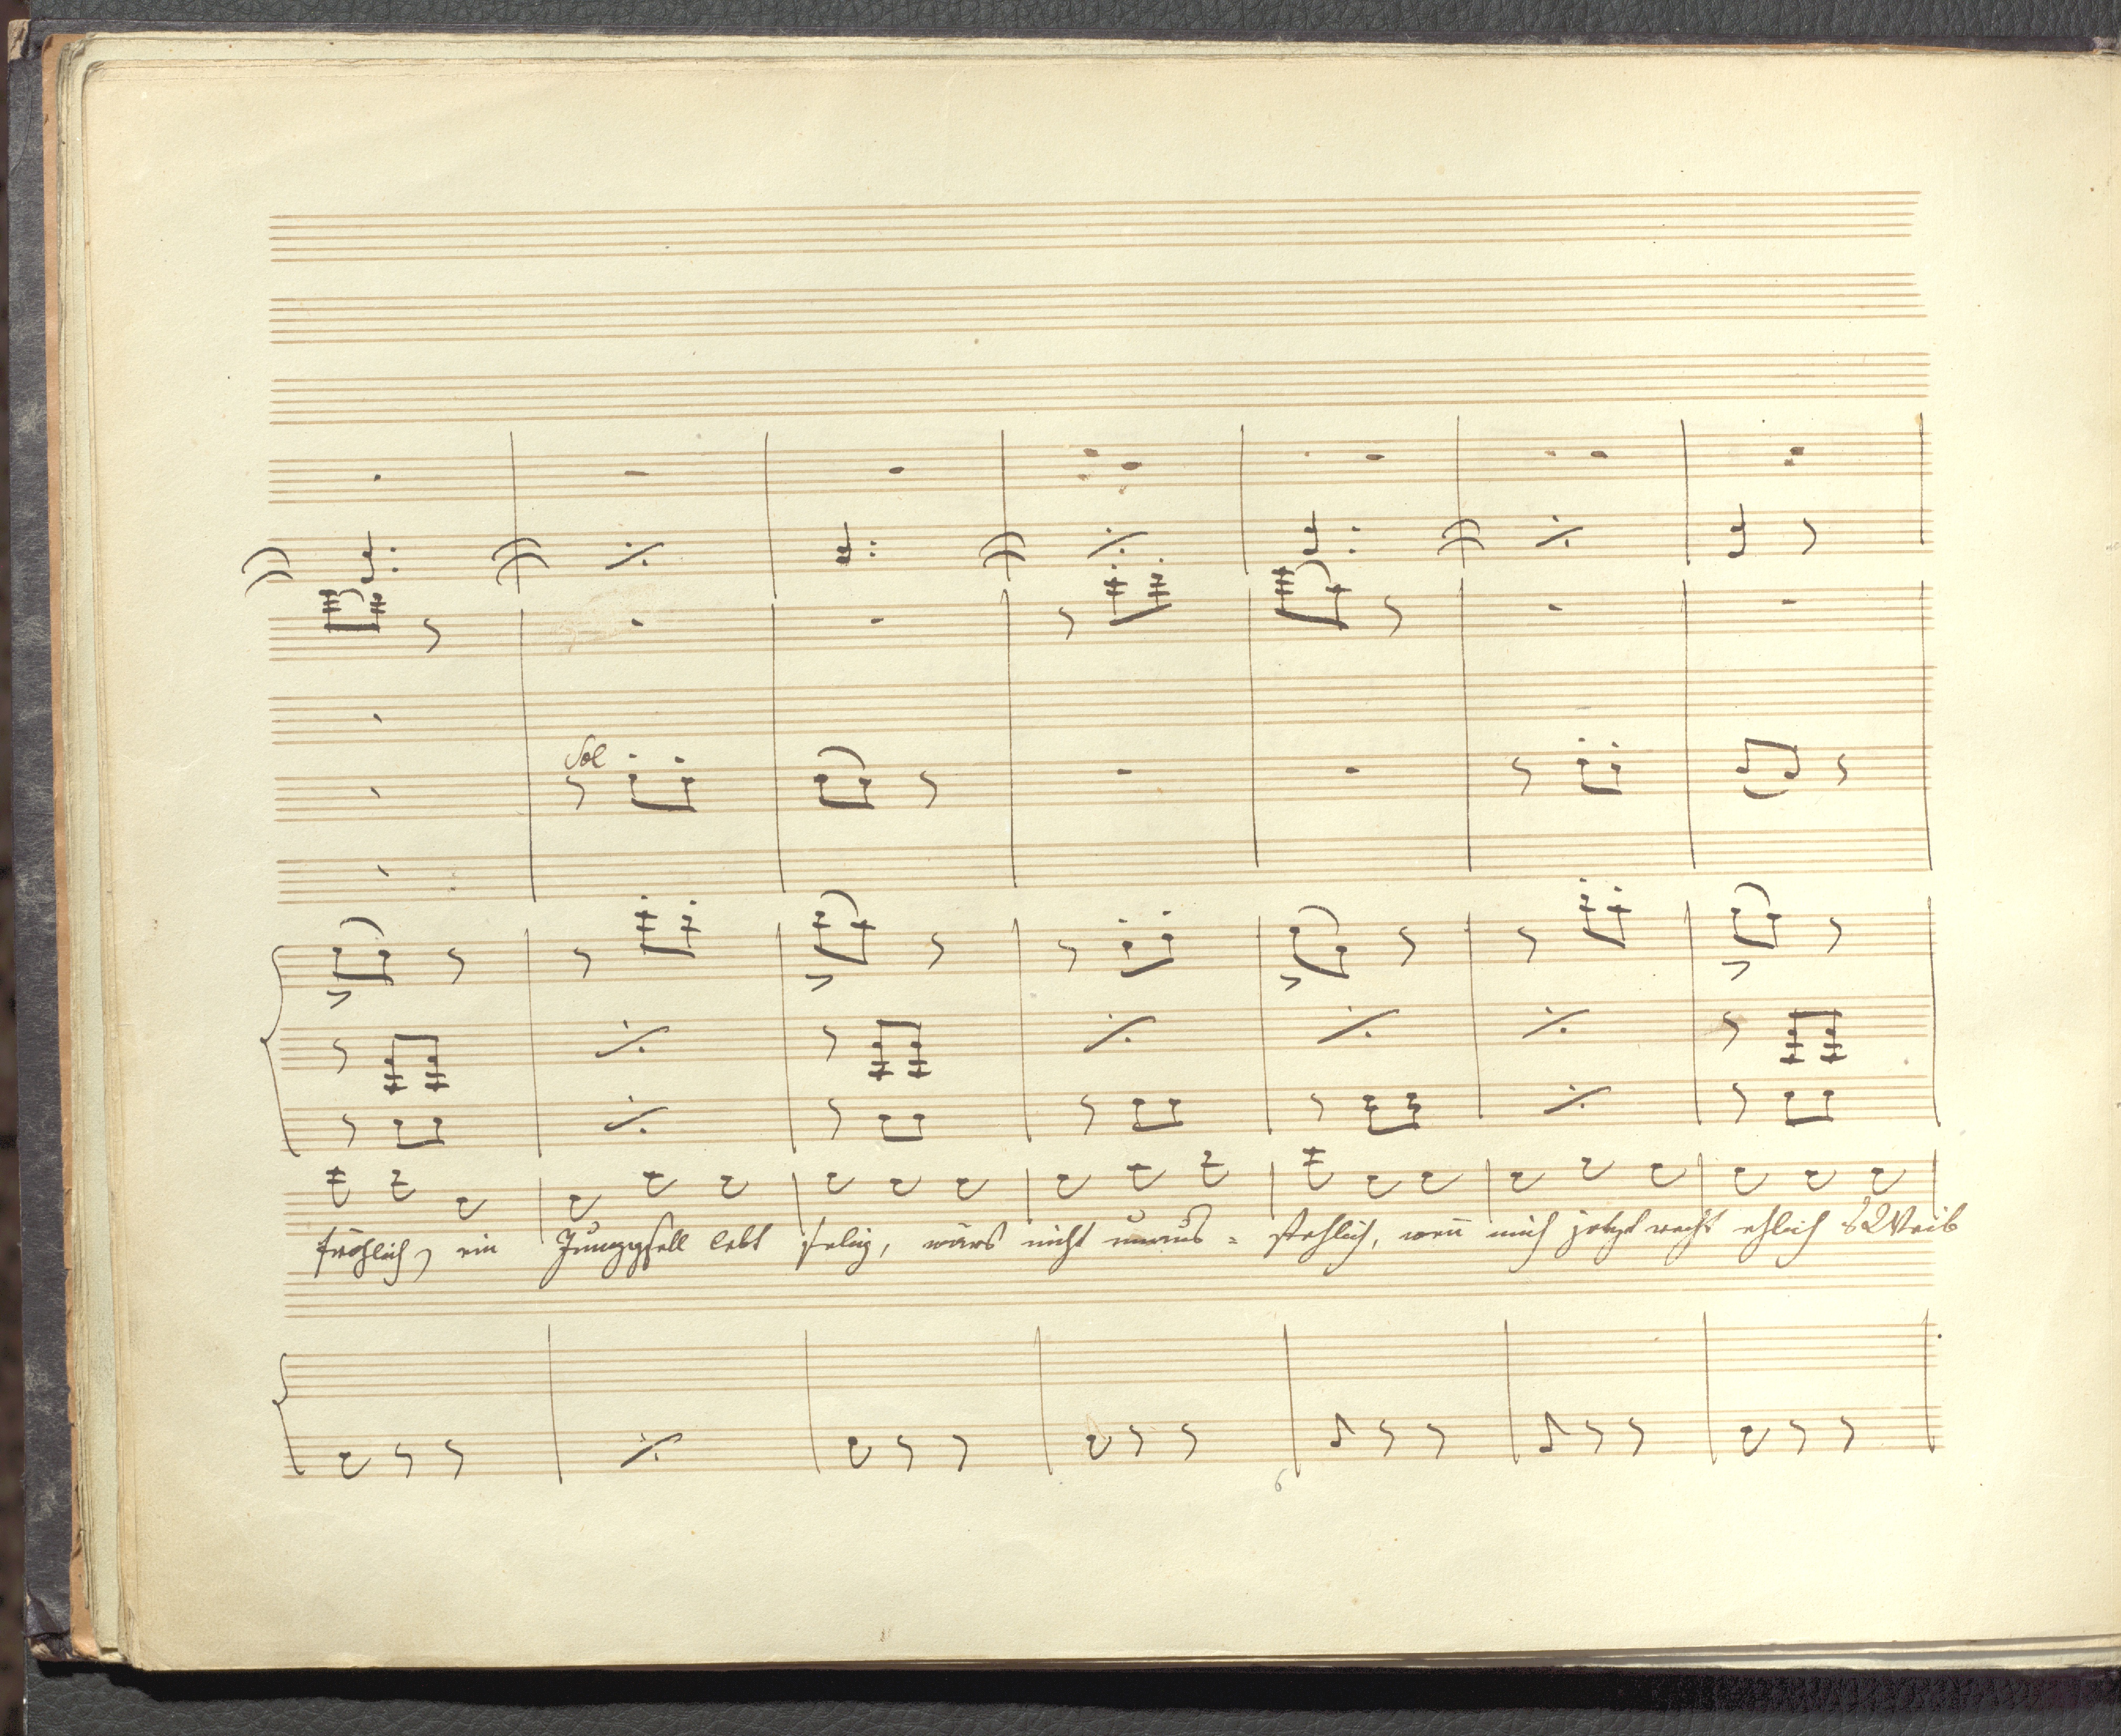 Sol
fröhlich, ein Junggsell lebt selig, wärs nicht unaus = stehlich, wen̄ mich jetzt recht ehlich s Weib
6